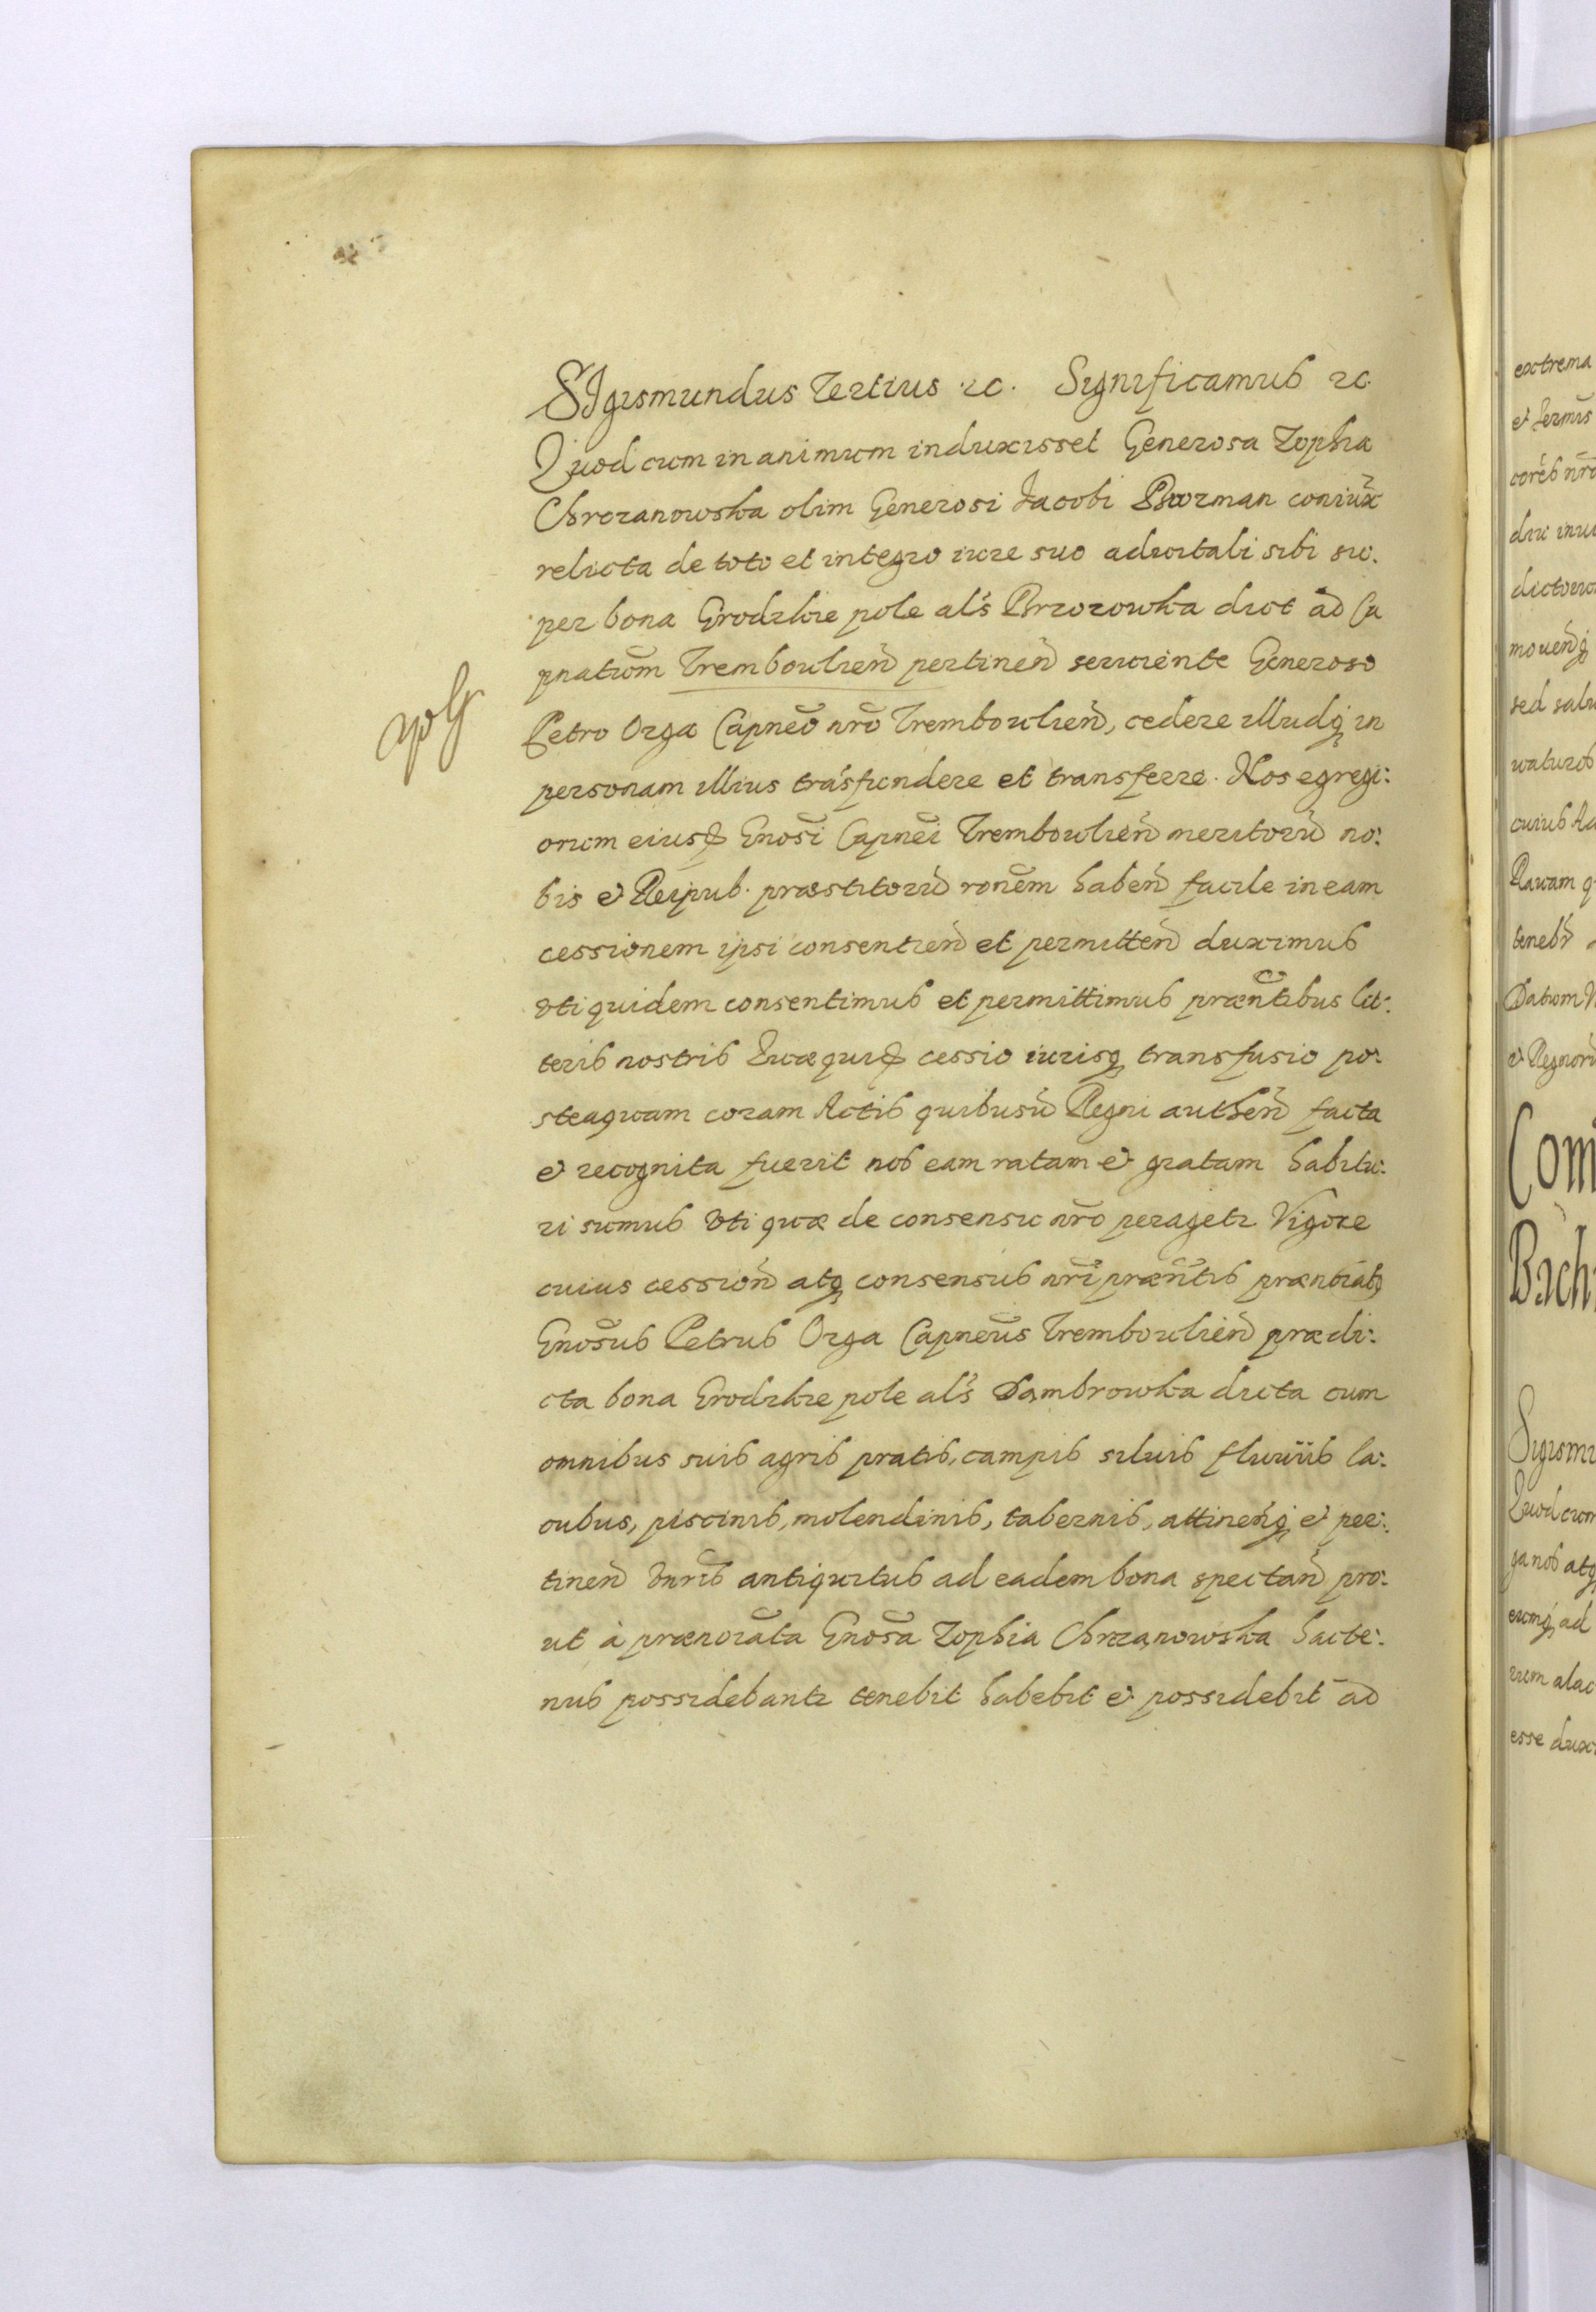 SIgismundus Tertius ꝛc. Significamus ꝛc.
Quod cum in animum induxisset Generosa Zophia
Chrczanowska olim Generosi Jacobi coniux
relicta de toto et integro iure suo aduitali sibi su:
per bona Grodzkie pole als Brzozowka dict ad Ca
pnatum Trembowlien pertinen seruiente Generoso
Petro Ozga Capneo nro Trembowlien, cedere illudq in
personam illius trasfundere et transferre. Nos egregi:
orum eiusd Gnosi Capnei Trembowlien meritoru no:
bis et Reipub. præstitoru ronem haben facile in eam
cessionem ipsi consentien et permitten duximus
vti quidem consentimus et permittimus præntibus lit:
teris nostris Quæquid cessio iurisq transfusio po:
steaquam coram Actis quibusu Regni authen facta
et recognita fuerit nos eam ratam et gratam habitu:
ri sumus vti quæ de consensu nro peragetr Vigore
cuius cession atq consensus nri præntis
Gnosus Petrus Ozga Capneus Trembowlien prædi:
cta bona Grodzkie pole als Dambrowka dicta cum
omnibus suis agris pratis, campis siluis fluuiis la:
cubus, piscinis, molendinis, tabernis, attinenq et per:
tinen vnris antiquitus ad eadem bona spectan pro:
ut à prænoiata Gnosa Zophia Chrzanowska hacte:
nus possidebantr tenebit habebit et possidebit ad
extrema
Datum
Com
Sigismu
Quod cum
ad
esse dux